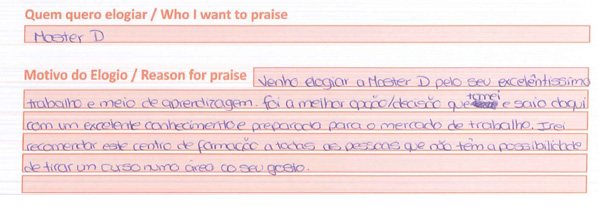 Quem quero elogiar / Who I want to praise
Master D
Motivo do Elogio / Reason for praise Venho elogiar a Master D pelo seu excelentíssimo
trabalho e meio de aprendizagem. foi a melhor opção/decisão que tomei e saio daqui
com um excelente conhecimento e preparada para o mercado de trabalho. Irei
recomendar este centro de formação a todas as pessoas que não têm a possibilidade
de tirar um curso numa área ao seu gosto.